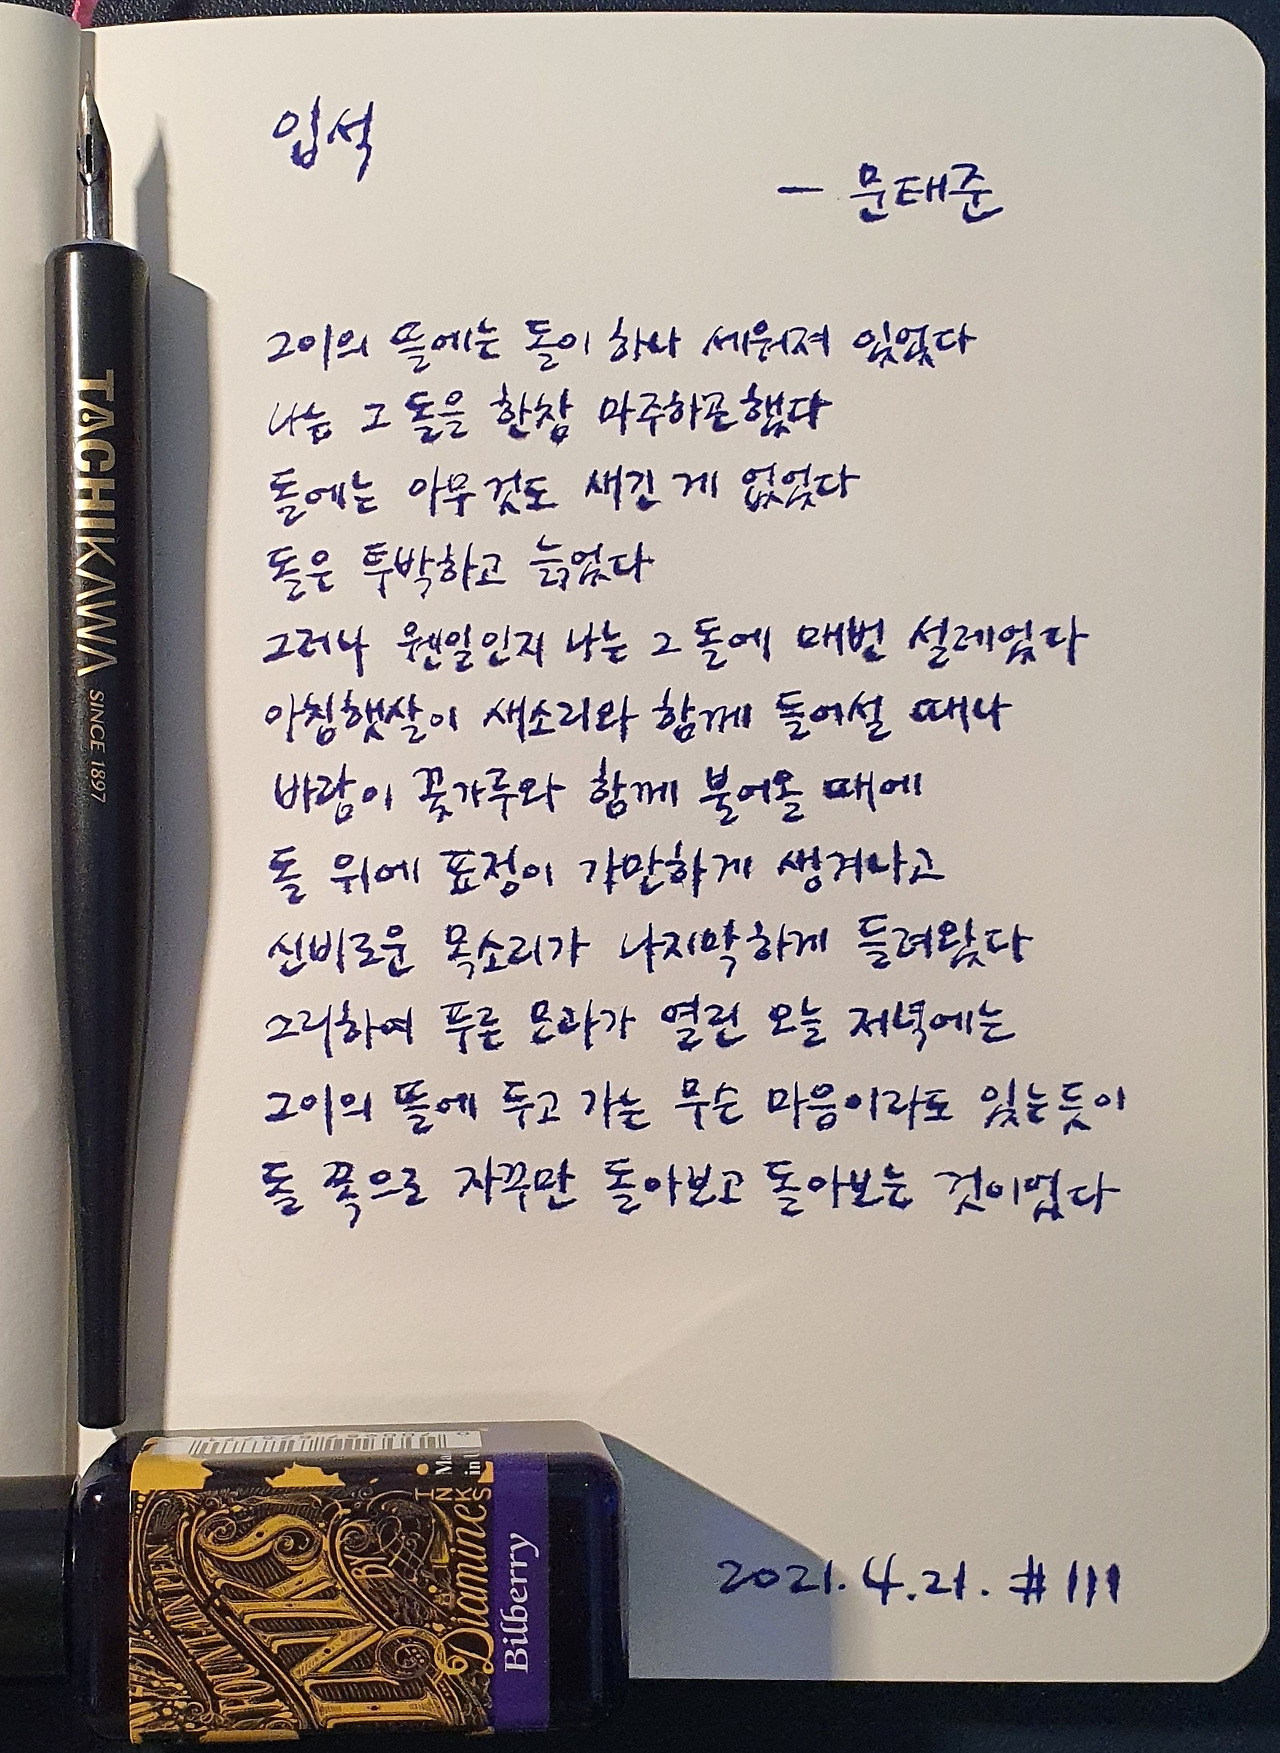 입석
- 문태준
그이의 뜰에는 돌이 하나 세워져 있었다
나는 그 돌을 한참 마주하곤 했다
돌에는 아무 것도 새긴 게 없었다
돌은 투박하고 늙었다
그러나 웬일인지 나는 그 돌에 매번 설레었다
아침햇살이 새소리와 함께 들어설 때나
바람이 꽃가루와 함께 불어올 때에
돌 위에 표정이 가만하게 생겨나고
신비로운 목소리가 나지막하게 들려왔다
그리하여 푸른 모과가 열린 오늘 저녁에는
그이의 뜰에 두고 가는 무슨 마음이라도 있는 듯이
돌 쪽으로 자꾸만 돌아보고 돌아보는 것이었다
2021.4.21. #111
TACHIKAWA SINCE 1897
FOUNTAIN PEN
INKS
BY
Diamine
INKS
Bilberry